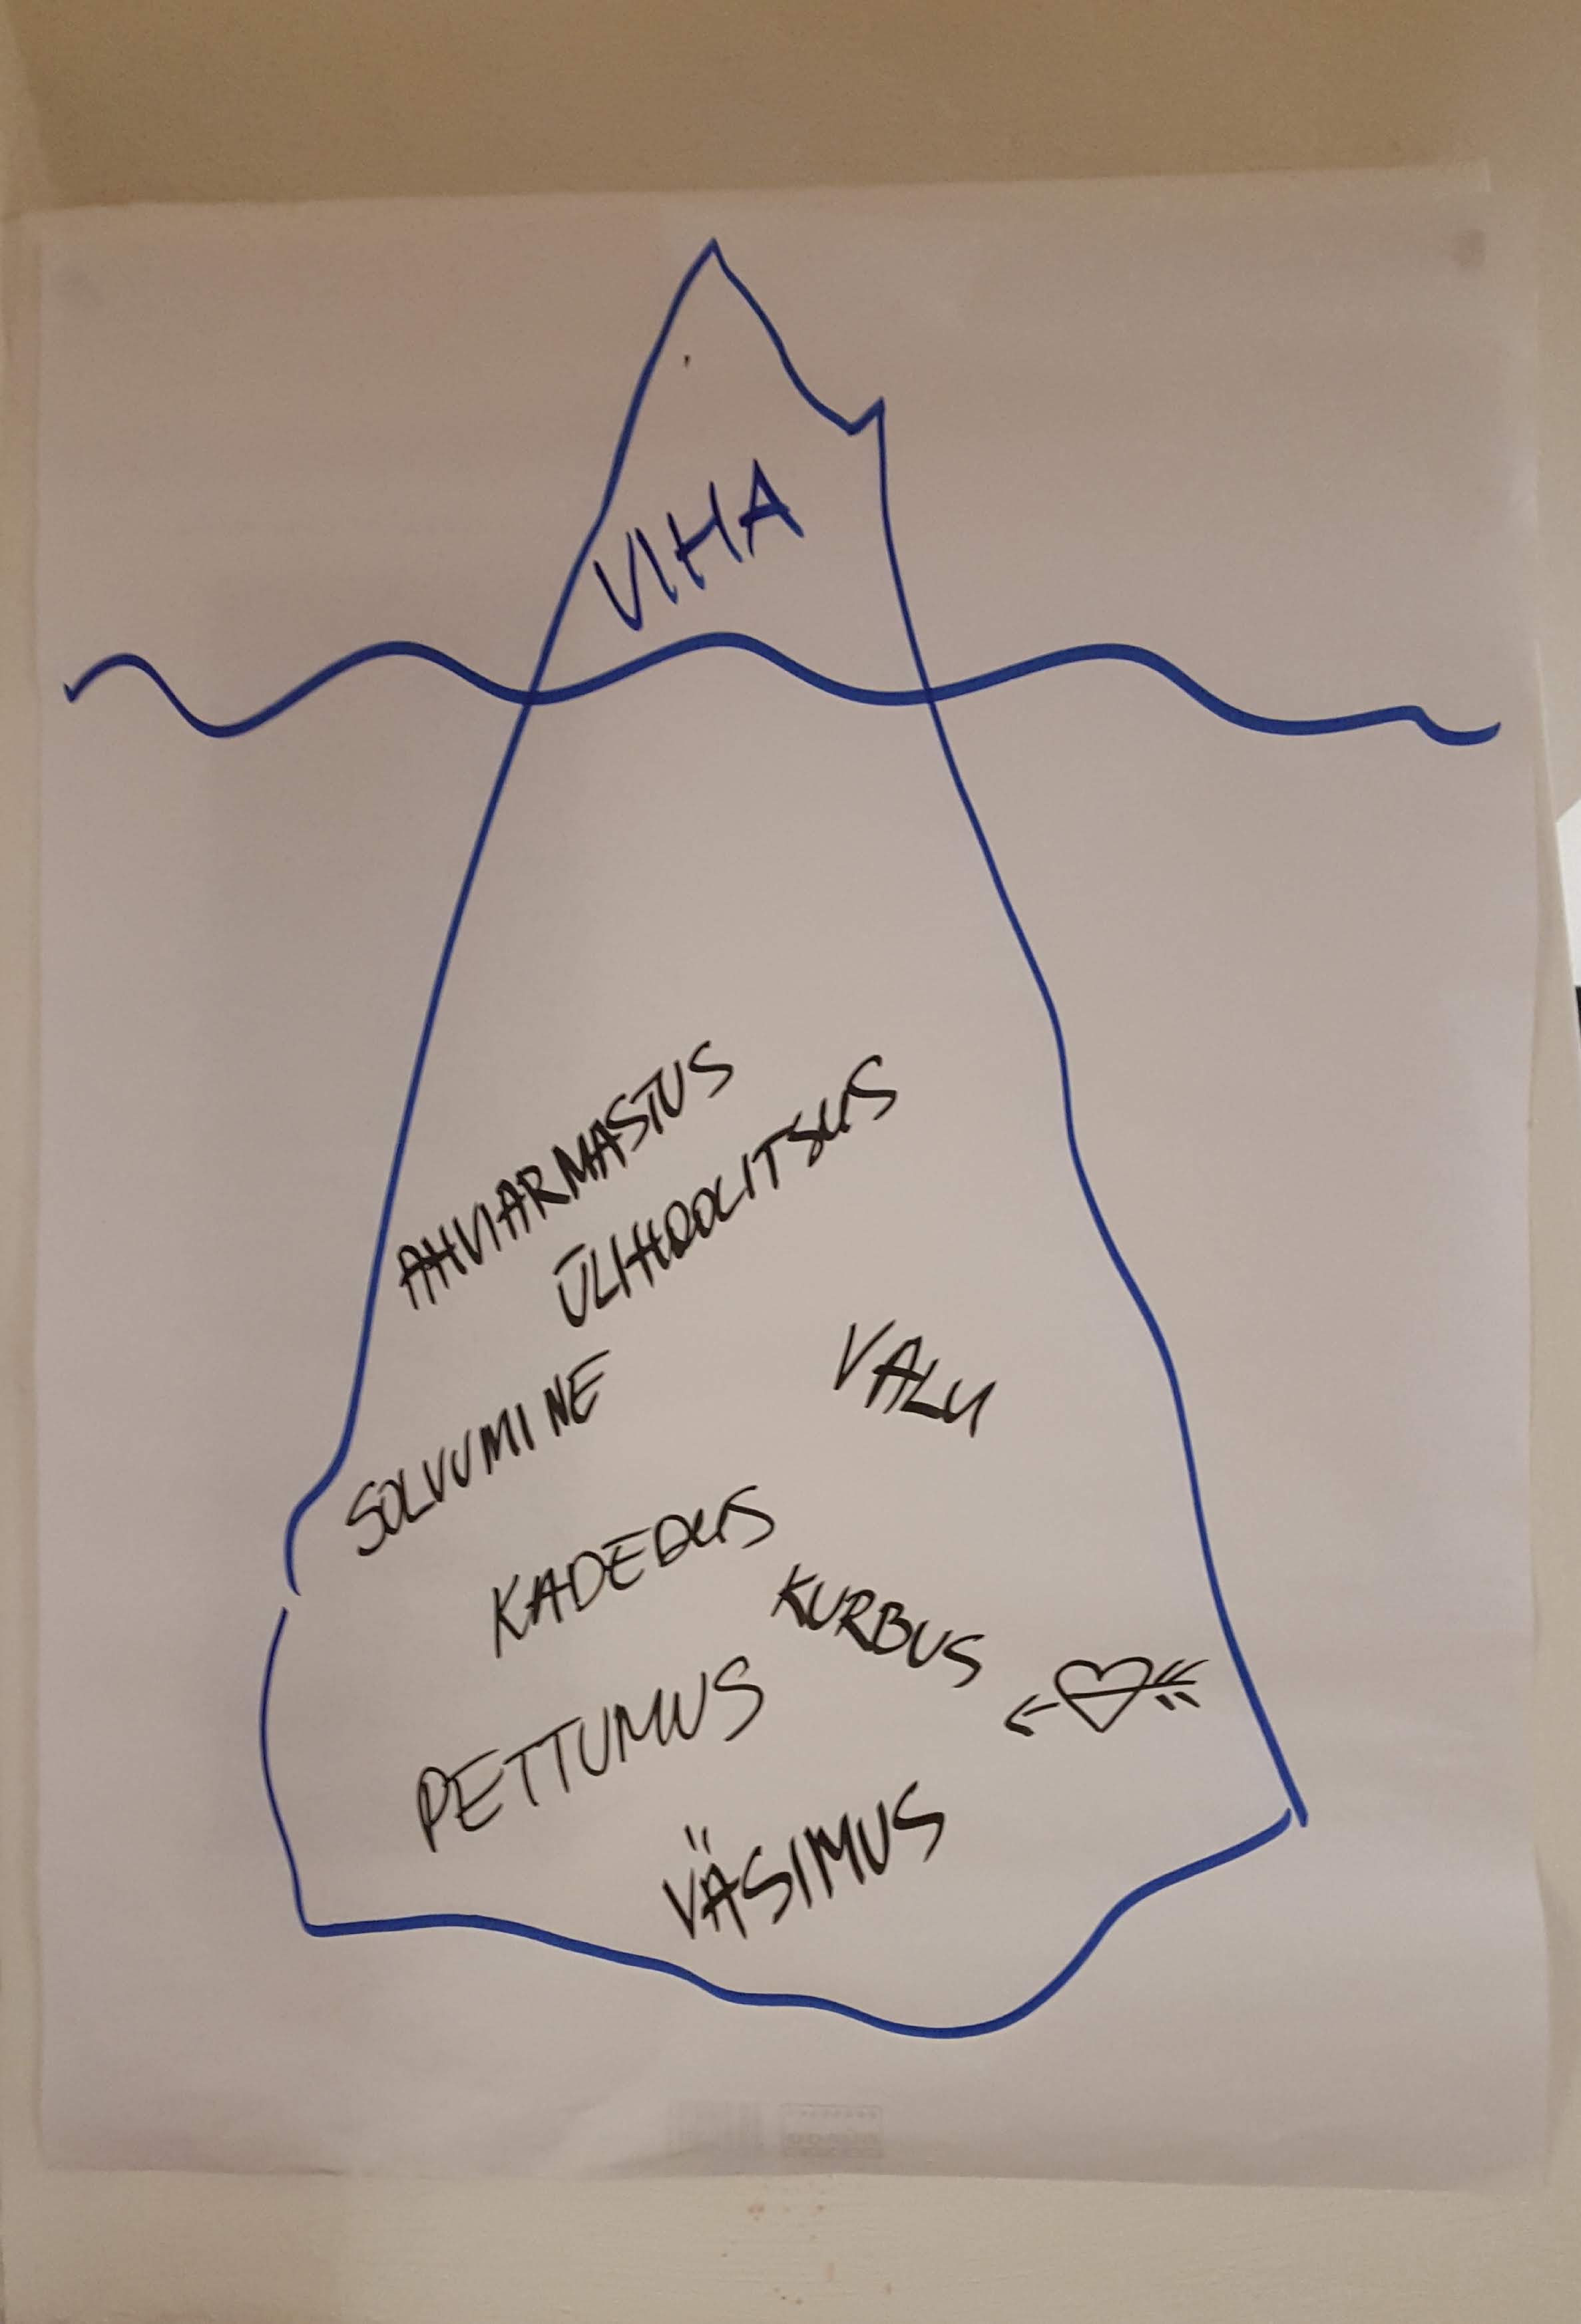 VIHA
AHVIARMASTUS
ÜLIHOOLITSUS
VALU
SOLVUMINE
KADEDUS
KURBUS
PETTUMUS
VÄSIMUS